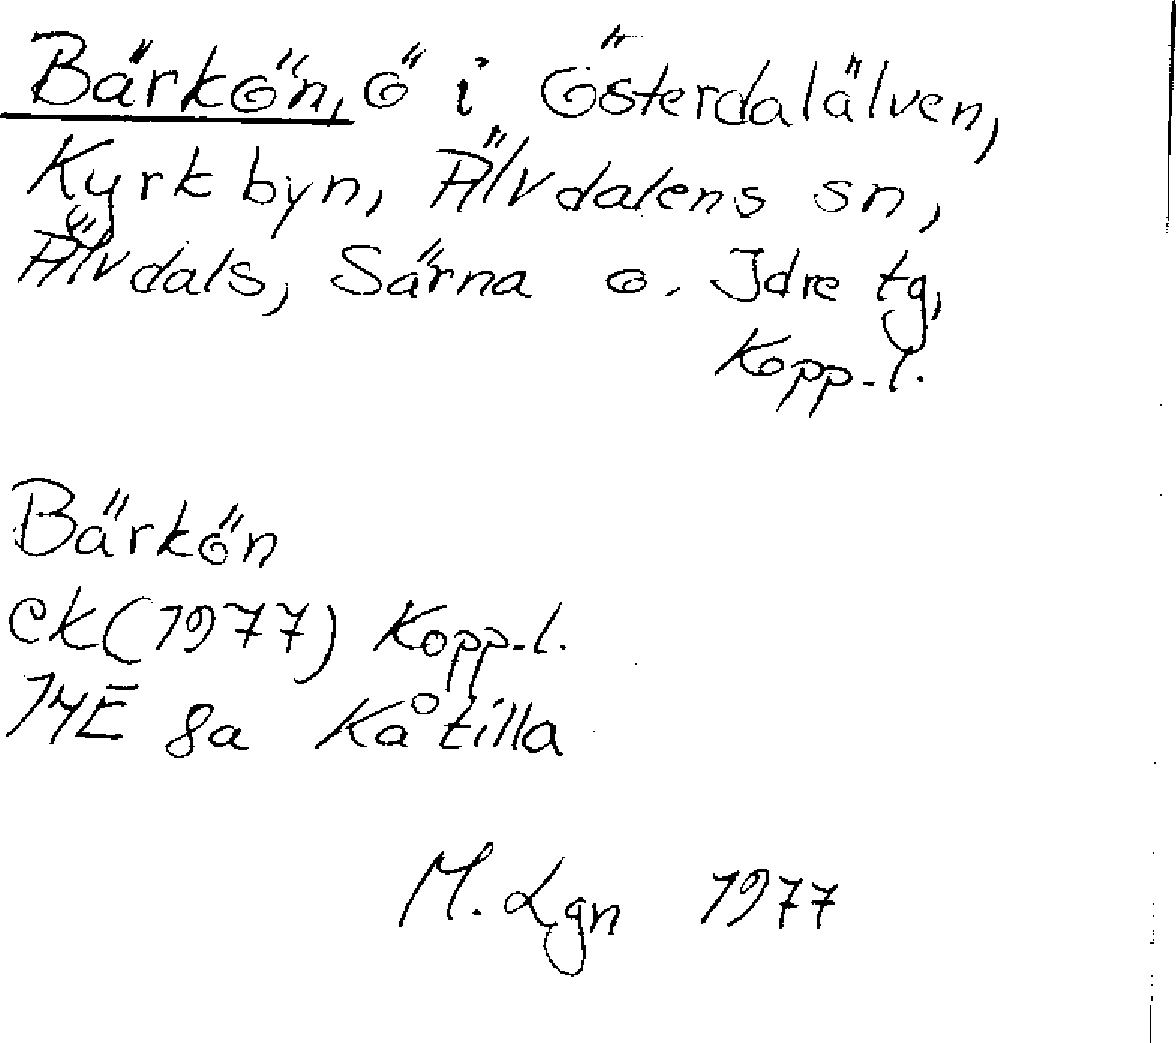 Bärkön, ö i Österdalälven,
Kyrkbyn, Älvdalens sn,
Älvdals, Särna o. Idre tg,
Kopp-l.
Bärkön
ek(1977) Kopp-l.
14E 8a Kåtilla
M. Lgn 1977